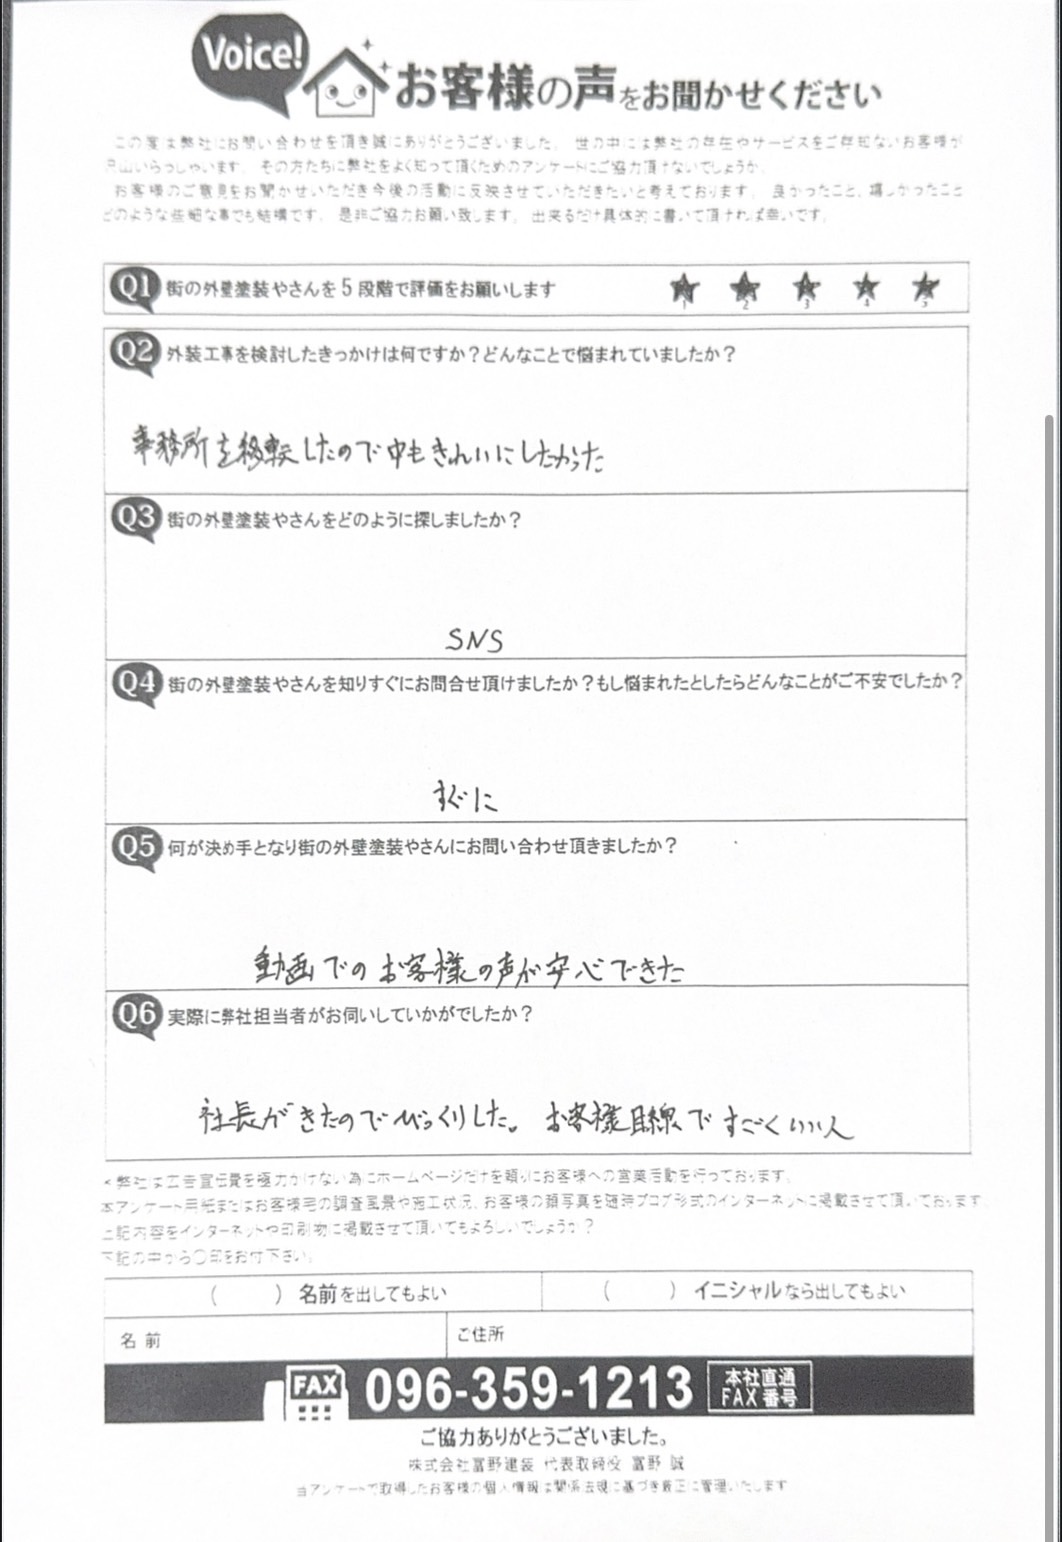 Voice!
お客様の声をお聞かせください
この度は弊社にお問い合わせを頂き誠にありがとうございました。 世の中には弊社の存在やサービスをご存知ないお客様が
沢山いらっしゃいます。 その方たちに弊社をよく知って頂くためのアンケートにご協力頂けないでしょうか。
お客様のご意見をお聞かせいただき今後の活動に反映させていただきたいと考えております。 良かったこと、嬉しかったこと
どのような些細な事でも結構です。 是非ご協力お願い致します。 出来るだけ具体的に書いて頂ければ幸いです。
Q1 街の外壁塗装やさんを5段階で評価をお願いします
1 2 3 4 5
Q2 外装工事を検討したきっかけは何ですか？どんなことで悩まれていましたか？
事務所を移転したので中もきれいにしたかった
Q3 街の外壁塗装やさんをどのように探しましたか？
SNS
Q4 街の外壁塗装やさんを知りすぐにお問合せ頂けましたか？もし悩まれたとしたらどんなことがご不安でしたか？
すぐに
Q5 何が決め手となり街の外壁塗装やさんにお問い合わせ頂きましたか？
動画でのお客様の声が安心できた
Q6 実際に弊社担当者がお伺いしていかがでしたか？
社長がきたのでびっくりした。 お客様目線ですごくいい人
＊弊社は広告宣伝費を極力かけない為にホームページだけを頼りにお客様への営業活動を行っております。
本アンケート用紙またはお客様宅の調査風景や施工状況、お客様の顔写真を随時ブログ形式のインターネットに掲載させて頂いております。
上記内容をインターネットや印刷物に掲載させて頂いてもよろしいでしょうか？
下記の中から〇印をお付下さい。
（ ）名前を出してもよい （ ）イニシャルなら出してもよい
名前 ご住所
FAX 096-359-1213 本社直通
FAX番号
ご協力ありがとうございました。
株式会社冨野建装 代表取締役 冨野 誠
当アンケートで取得したお客様の個人情報は関係法規に基づき厳正に管理いたします